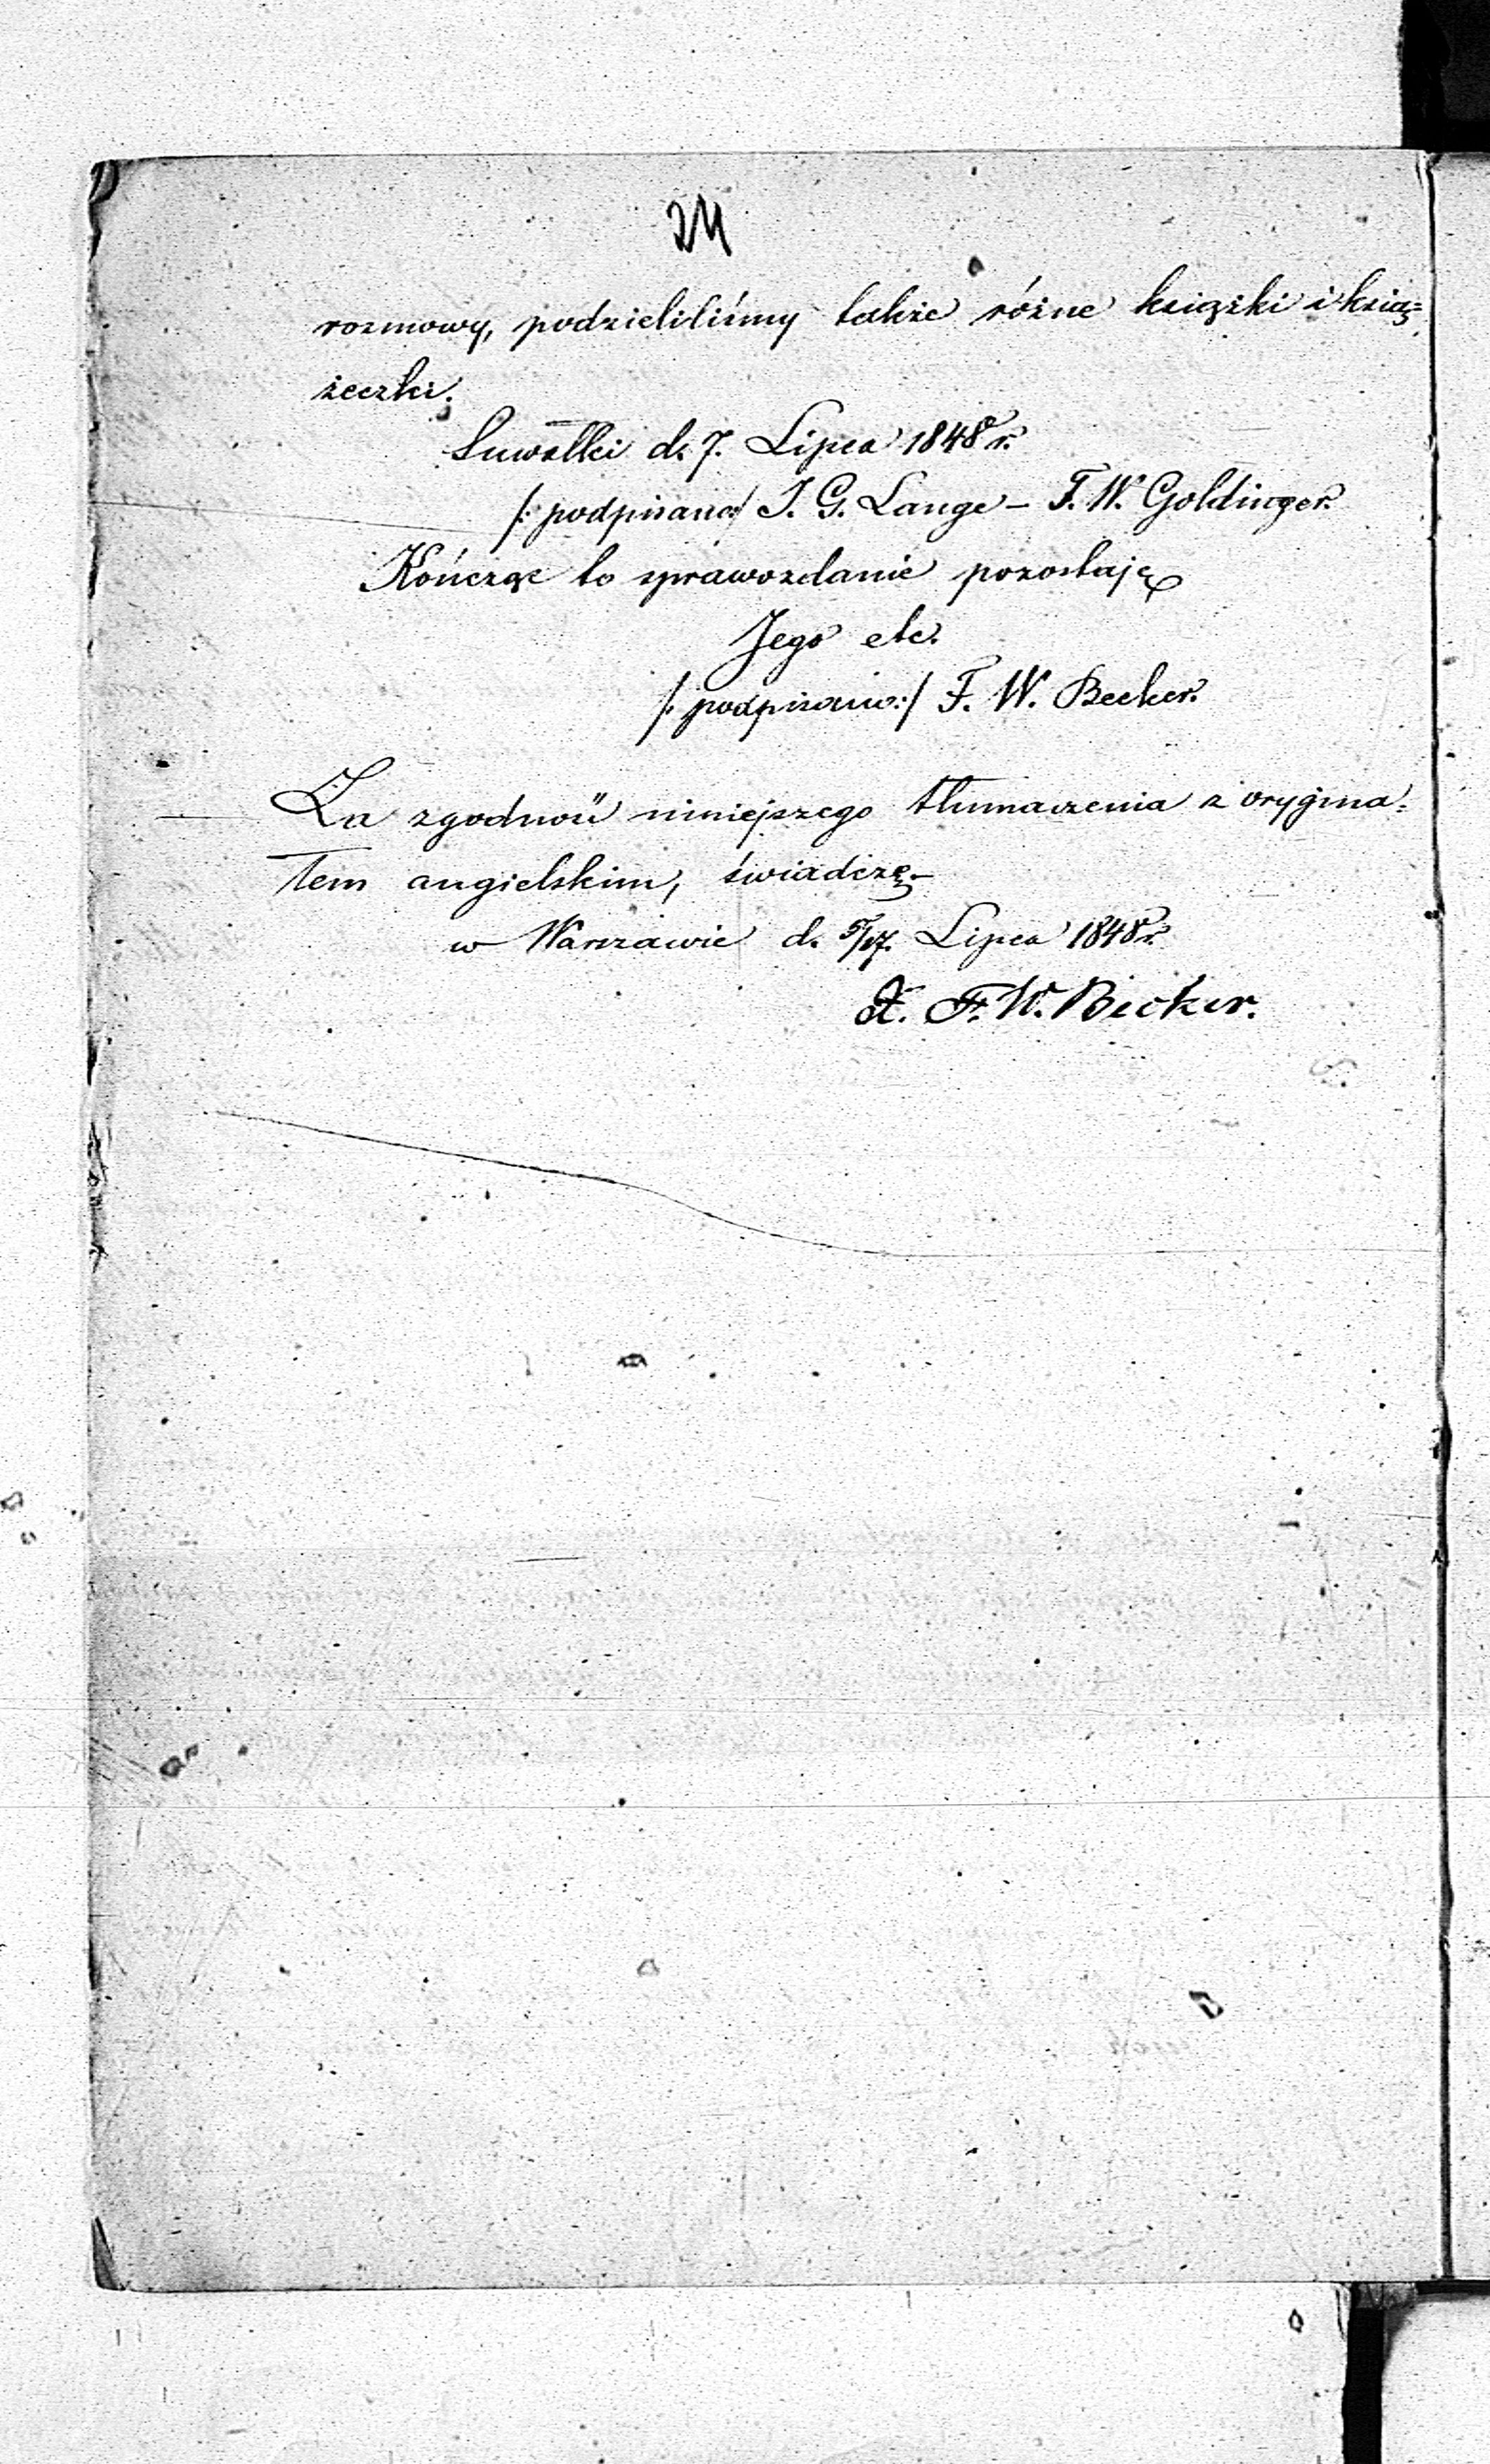 24
rozmowy, podzieliliśmy także różne książki i ksią=
żeczki.
Suwałki d. 7. Lipca 1848 r.
/: podpisano:/ J. G. Lange – F. W. Goldinger.
Kończąc to sprawozdanie pozostaję
Jego etc.
/: podpisano:/ F. W. Becker.
Za zgodność niniejszego tłumaczenia z orygina=
łem angielskim, świadczę.–
w Warszawie d. 5/17. Lipca 1848 r.
X. F. W. Becker.